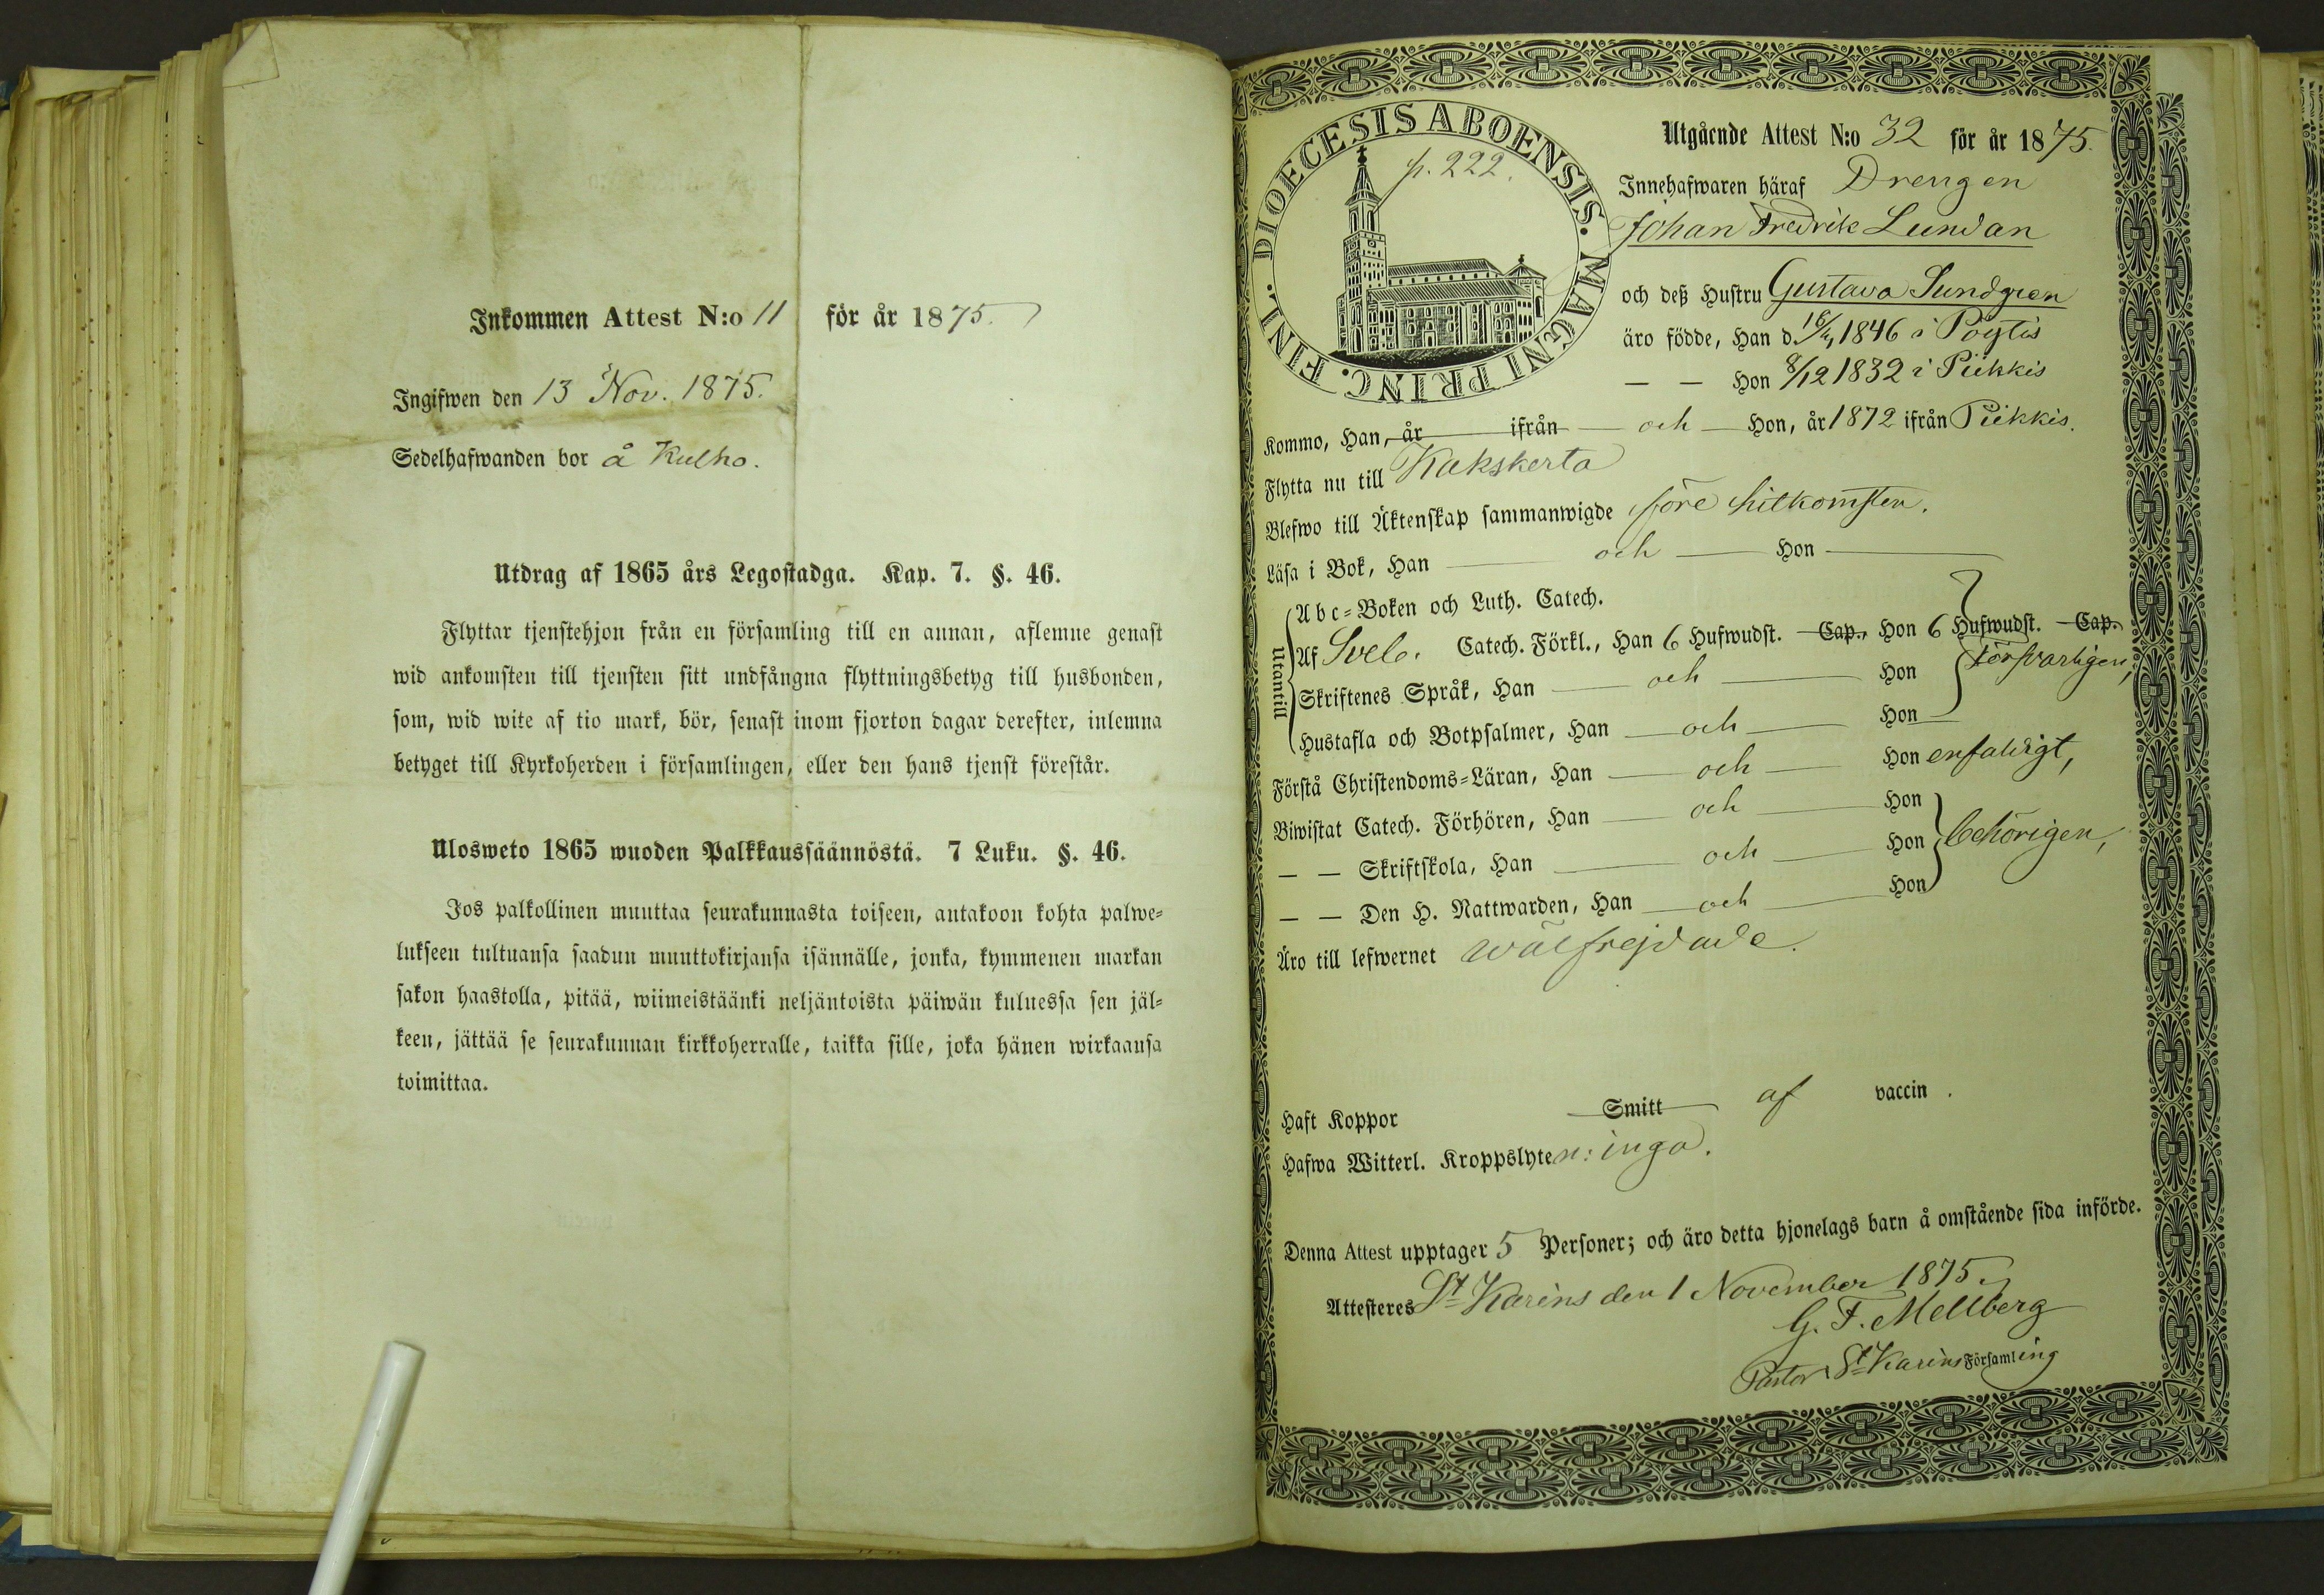 Inkommen Attest N:o 11 för år 1875.
Ingifwen den 13 Nov. 1875.
Sedelhafwanden bor å Kulho.
Utdrag af 1865 års Legostadga. Kap. 7. §. 46.
Flyttar tjenstehjon från en församling till en annan, aflemne genast
wid ankomsten till tjensten sitt undfångna flyttningsbetyg till husbonden,
som, wid wite af tio mark, bör, senast inom fjorton dagar derefter, inlemna
betyget till Kyrkoherden i församlingen, eller den hans tjenst förestår.
Ulosweto 1865 wuoden Palkkaussäännöstä. 7 Luku. §. 46.
Jos palkollinen muuttaa seurakunnasta toiseen, antakoon kohta palwe-
lukseen tultuansa saadun muuttokirjansa isännälle, jonka, kymmenen markan
sakon haastolla, pitää, wiimeistäänki neljäntoista päiwän kuluessa sen jäl-
keen, jättää se seurakunnan kirkkoherralle, taikka sille, joka hänen wirkaansa
toimittaa.
DIOECESIS ABOENSIS. MAGNI PRINC. FINL.
p. 222.
Utgående Attest N:o 32 för år 1875.
Innehafwaren häraf Drengen
Johan Fredrik Lundan
och deß Hustru Gustava Sundgren
äro födde, Han d. 16/4 1846 i Pöytis
— — Hon 8/12 1832 i Piikkis
Kommo, Han, år ifrån och Hon, år 1872 ifrån Piikkis.
Flytta nu till Kakskerta
Blefwo till Äktenskap sammanwigde före hitkomsten.
Läsa i Bok, Han och Hon
Utantill
Abc-Boken och Luth. Catech.
Af Sveb. Catech. Förkl., Han 6 Hufwudst. Cap., Hon 6 Hufwudst. Cap.
försvarligen,
Skriftenes Språk, Han och Hon
Hustafla och Botpsalmer, Han och Hon
Förstå Christendoms-Läran, Han och Hon enfaldigt,
Biwistat Catech. Förhören, Han och Hon
— — Skriftskola, Han och Hon behörigen,
— — Den H. Nattwarden, Han och Hon
Äro till lefwernet wälfrejdade.
Haft Koppor Smitt af vaccin.
Hafwa Witterl. Kroppslyten: inga.
Denna Attest upptager 5 Personer; och äro detta hjonelags barn å omstående sida införde.
Attesteres St Karins den 1 November 1875.
G. F. Mellberg
Pastor St Karins Församling